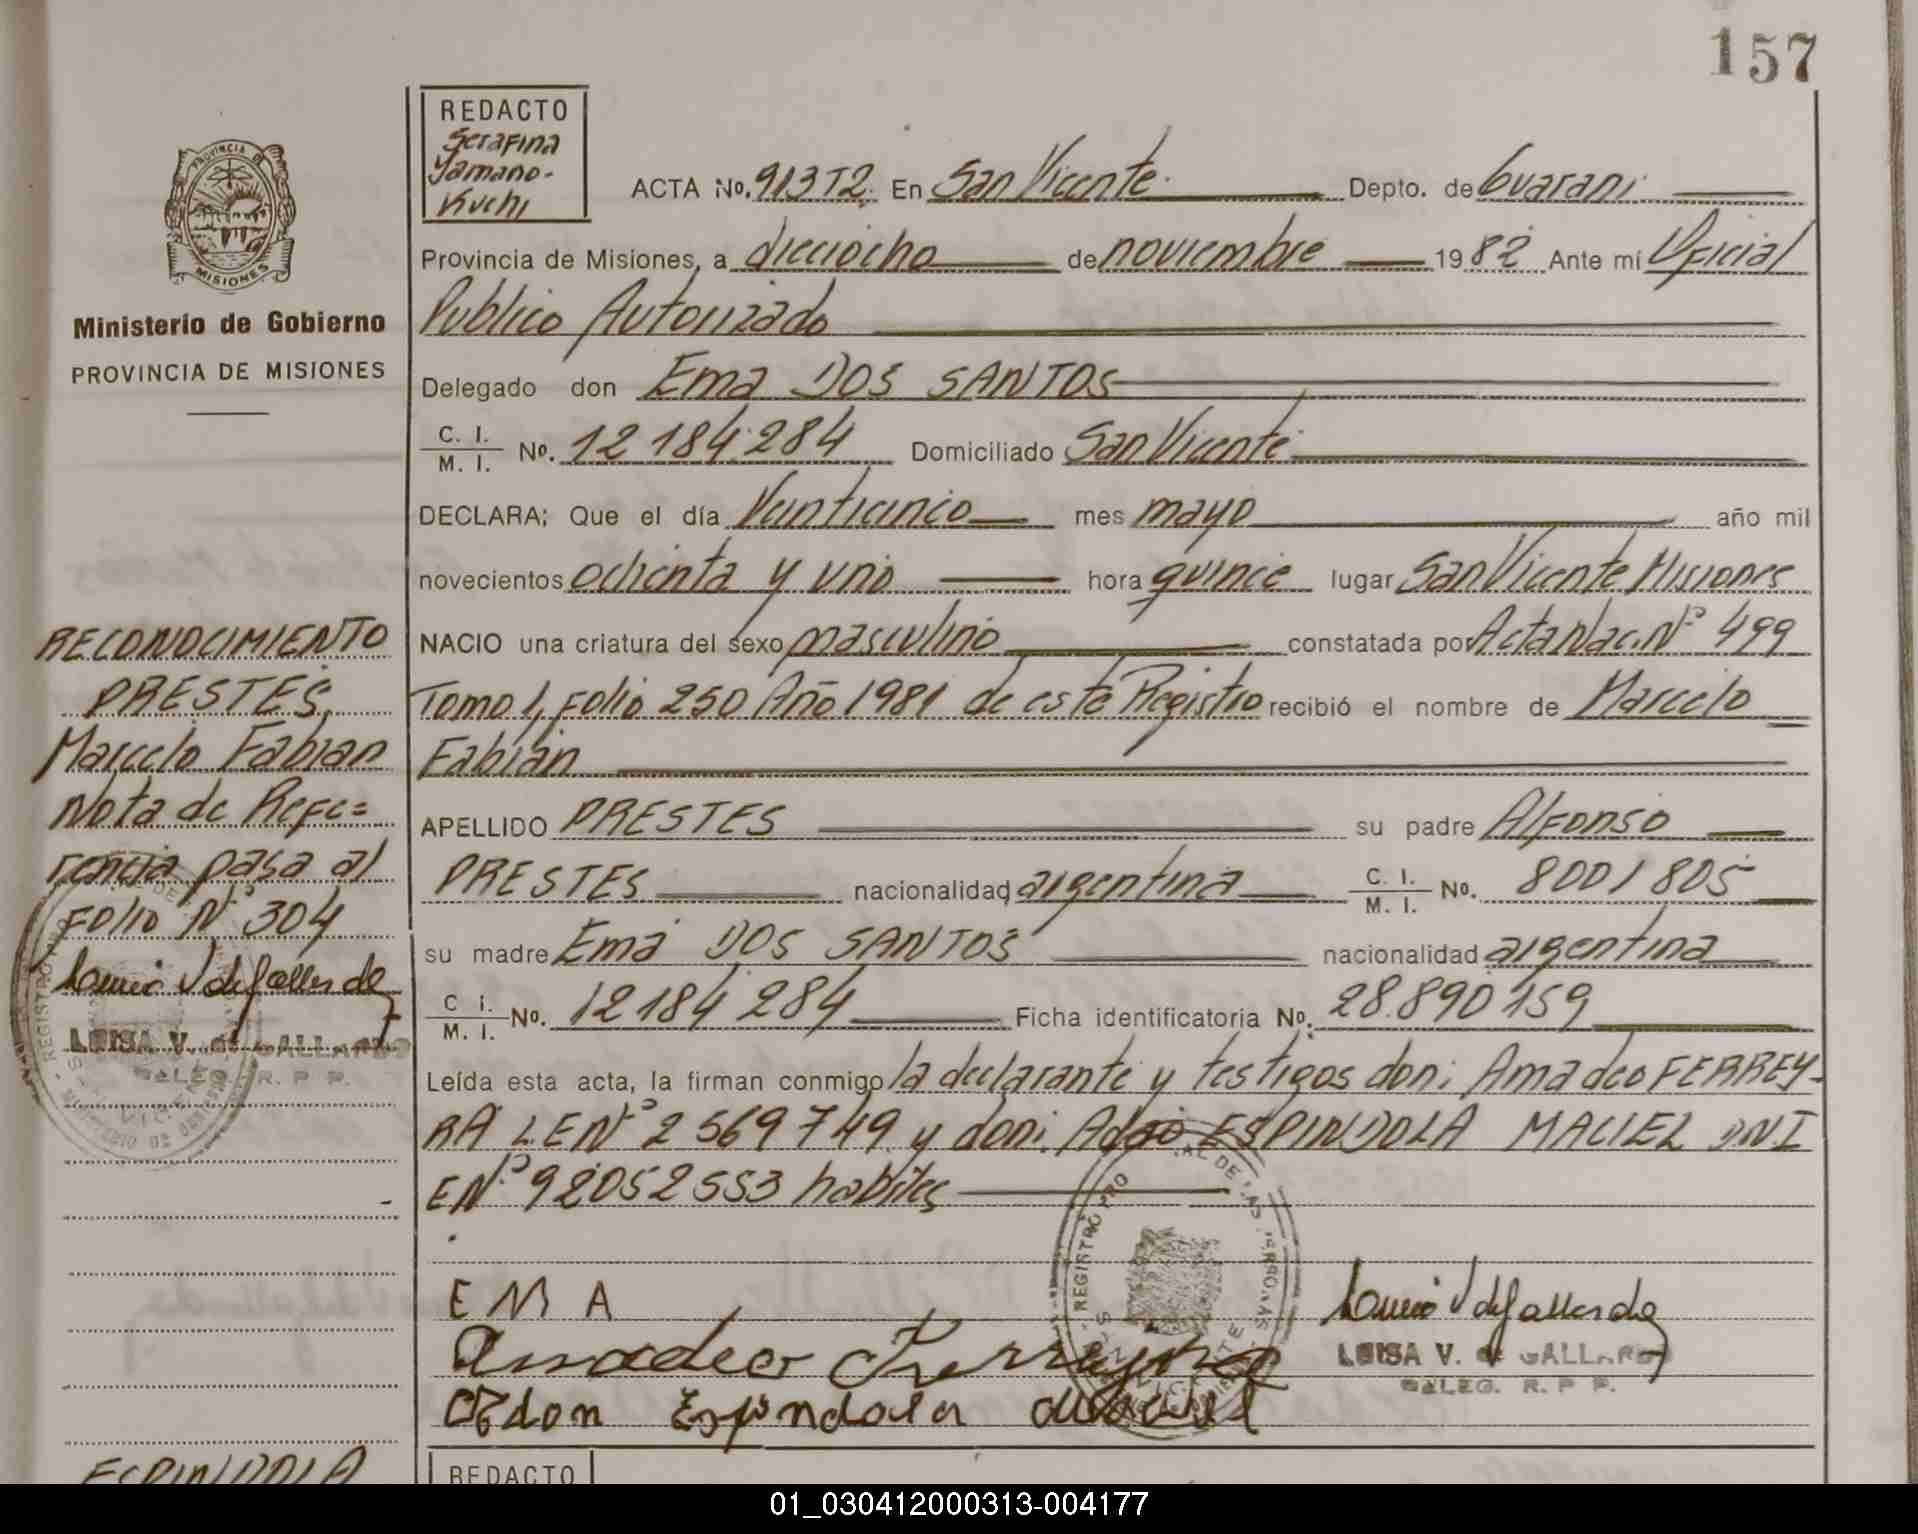 157
REDACTO
Serafina
Yamano-
Kuchi
ACTA No. 913T2. En San Vicente. Depto. de Guarani
Provincia de Misiones, a dieciocho de noviembre 1982 Ante mí Oficial
Publico Autorizado
Delegado don Ema DOS SANTOS
C. I.
M. I. No. 12184284 Domiciliado San Vicente
DECLARA; Que el día Veinticinco mes mayo año mil
novecientos ochenta y uno hora quince lugar San Vicente Misiones
NACIO una criatura del sexo masculino constatada por Acta Nac. Nº 499
Tomo I, Folio 250 Año 1981 de este Registro recibió el nombre de Marcelo
Fabián
APELLIDO PRESTES su padre Alfonso
PRESTES nacionalidad argentina C. I.
M. I. No. 8001805
su madre Ema DOS SANTOS nacionalidad argentina
C I.
M. I. No. 12184284 Ficha identificatoria No. 28.890159
Leída esta acta, la firman conmigo la declarante y testigos don: Amadeo FERREY-
RA L.E Nº 2569749 y don: ESPINDOLA MACIEL DNI
E Nº 92052553 habiles
EMA
Amadeo Ferreyra
Espindola
LUISA V. de GALLARDO
DELEG. R. P. P.
PROVINCIA DE
MISIONES
Ministerio de Gobierno
PROVINCIA DE MISIONES
RECONOCIMIENTO
PRESTES,
Marcelo Fabian
Nota de Refe=
rencia pasa al
Folio Nº 304
LUISA V. de GALLARDO
DELEG. R. P. P.
ESPINDOLA
REDACTO
01_030412000313-004177